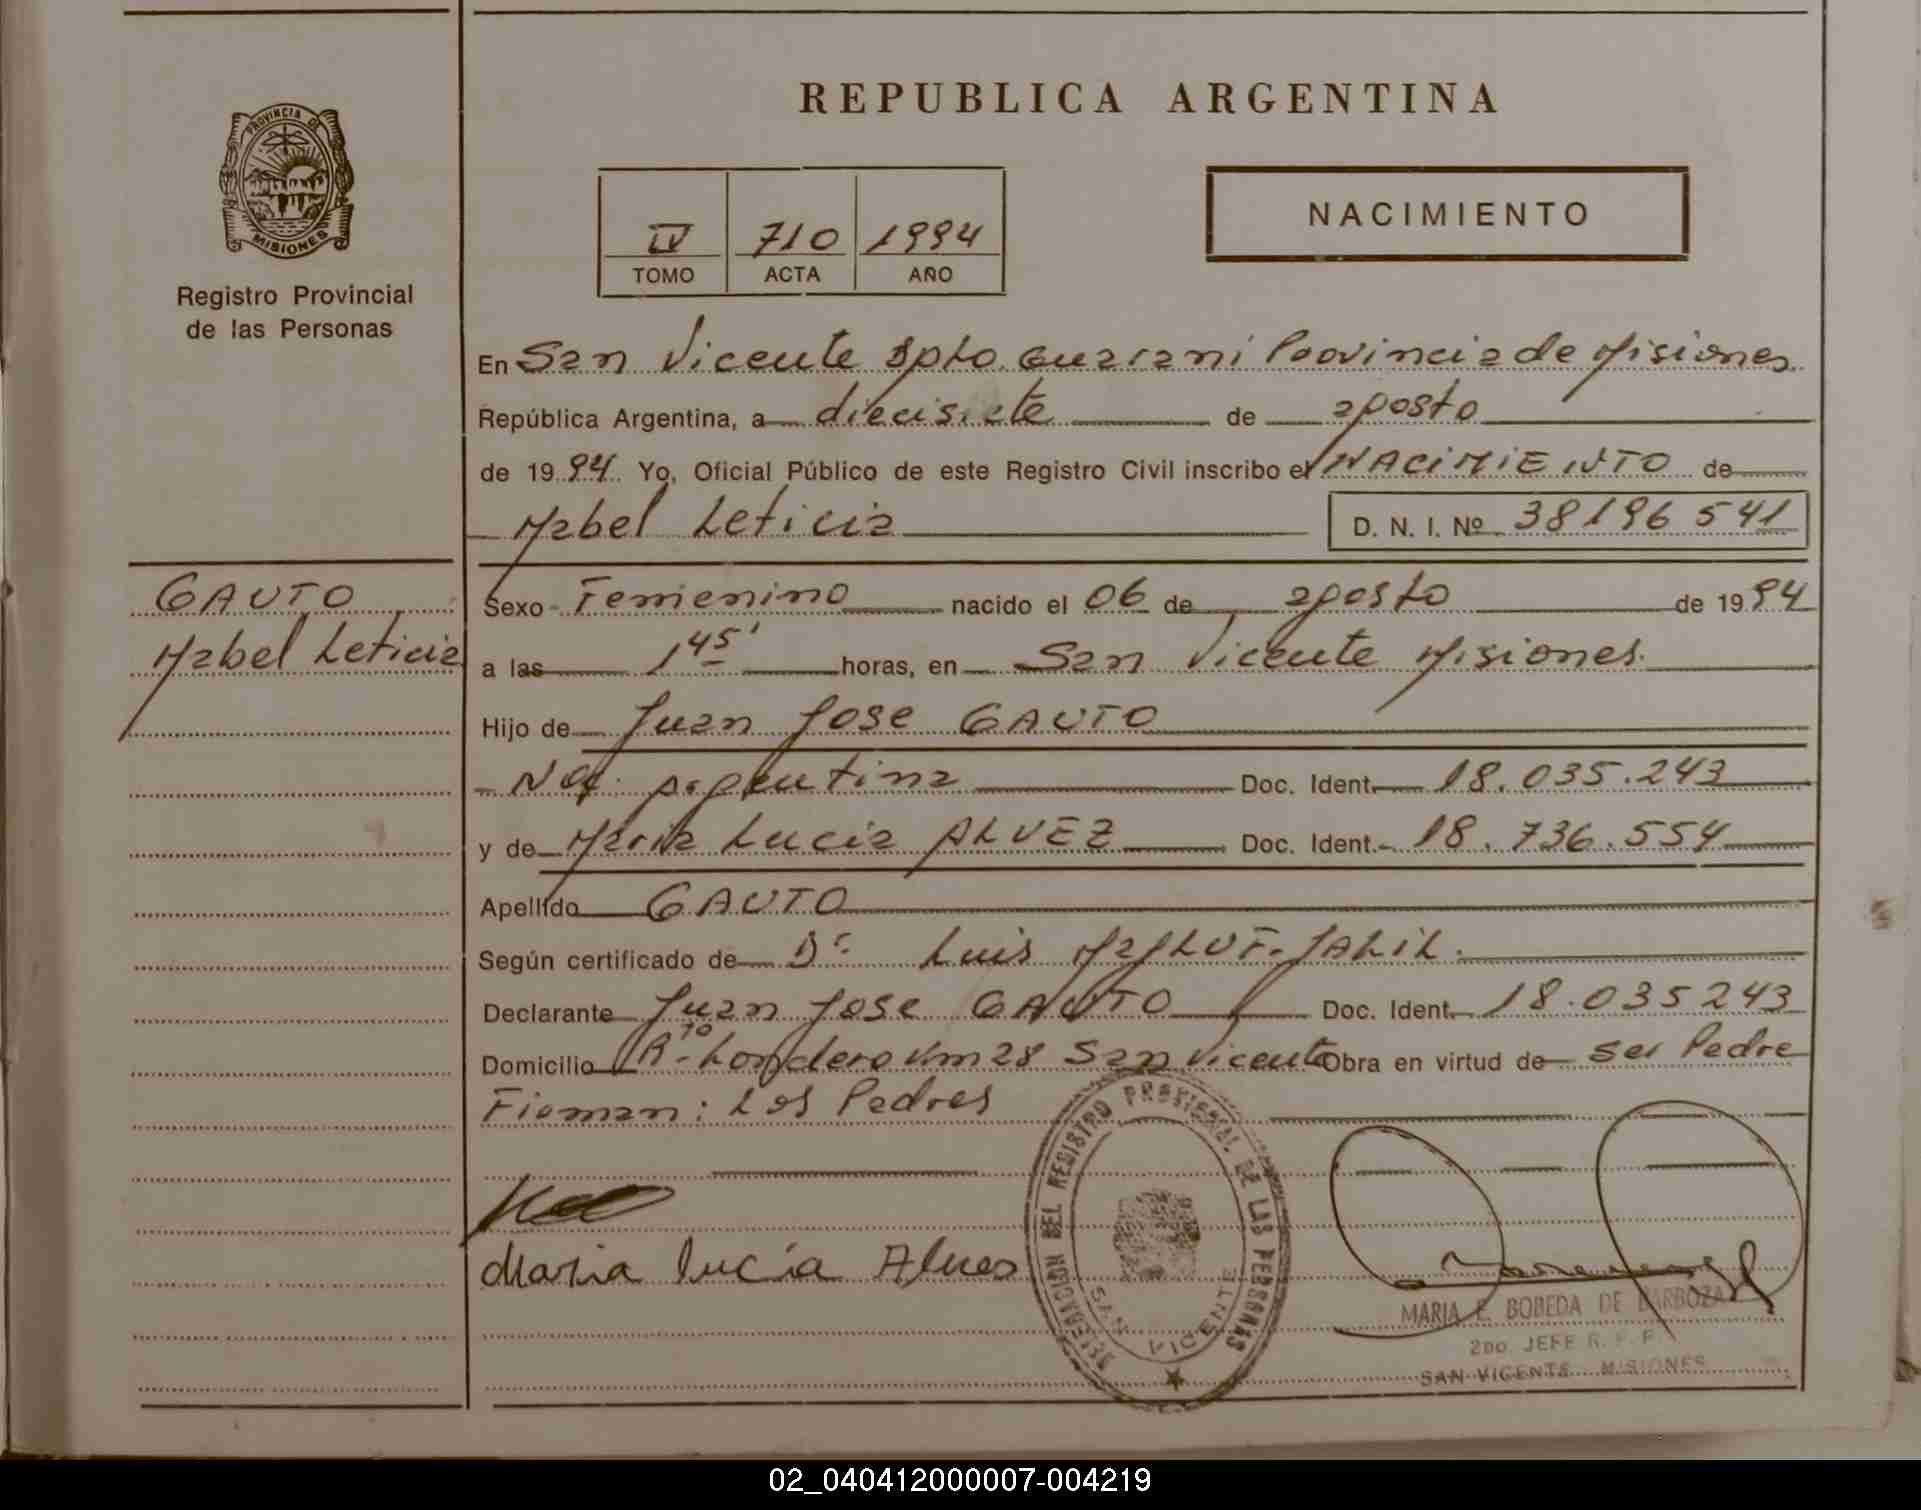 REPUBLICA ARGENTINA
PROVINCIA DE
MISIONES
Registro Provincial
de las Personas
IV 710 1994
TOMO ACTA AÑO
NACIMIENTO
En San Vicente Dpto. Guarani Provincia de Misiones
República Argentina, a diecisiete de agosto
de 1994 Yo, Oficial Público de este Registro Civil inscribo el NACIMIENTO de
Mabel Leticia D. N. I. Nº 38196541
GAUTO
Mabel Leticia
Sexo Femenino nacido el 06 de agosto de 1994
a las 1 45' horas, en San Vicente Misiones.
Hijo de Juan Jose GAUTO
Nac. Argentina Doc. Ident. 18.035.243
y de Maria Lucia ALVEZ Doc. Ident. 18.736.554
Apellido GAUTO
Según certificado de Dr. Luis JALIL.
Declarante Juan Jose GAUTO Doc. Ident. 18.035243
Domicilio Km 28 San Vicente Obra en virtud de ser Padre
Firman: Los Padres
Maria lucía Alves
DELEGACION DEL REGISTRO PROVINCIAL DE LAS PERSONAS
SAN VICENTE
MARIA E. BOBEDA DE BARBOZA
2DO JEFE R. P. P.
SAN VICENTE MISIONES
02_040412000007-004219